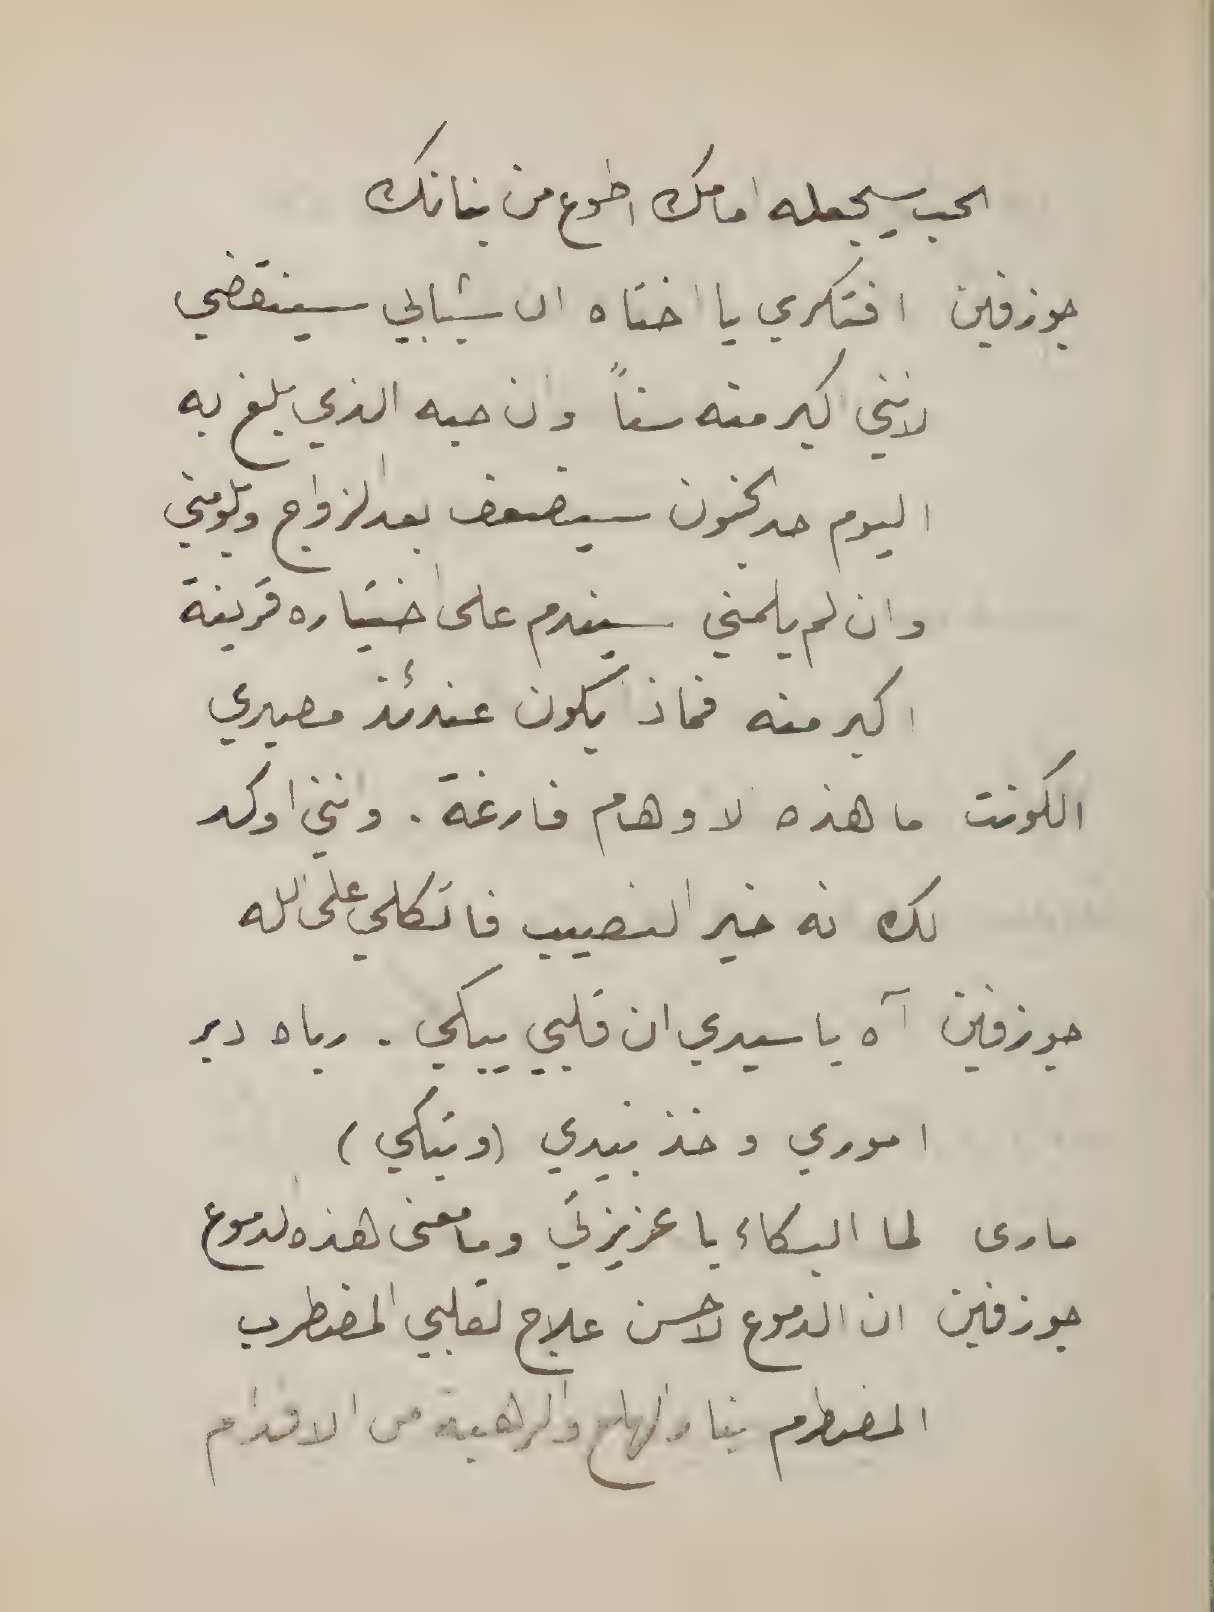 الحب سيجعله امامك اطوع من بنانك
جوزفين افتكري يا اختاه ان شبابي سينقضي
لانني اكبر منه سناً وان حبه الذي بلغ به
اليوم حد الجنون سيضعف بعد الزواج ويلومني
وان لم يلمني سيندم على اختياره قرينة
اكبر منه فماذا يكون عندئذ مصيري
الكونت ما هذه الا اوهام فارغة . وانني اوكد
لك انه خير النصيب فاتكلي على الله
جوزفين آه يا سيدي ان قلبي يبكي . رباه دبر
اموري وخذ بيدي (وتبكي)
ماري لما البكاء يا عزيزتي وما معنى هذه الدموع
جوزفين ان الدموع لاحسن علاج لقلبي المضطرب
المضطرم بنار الهلع والرهبة من الاقدام